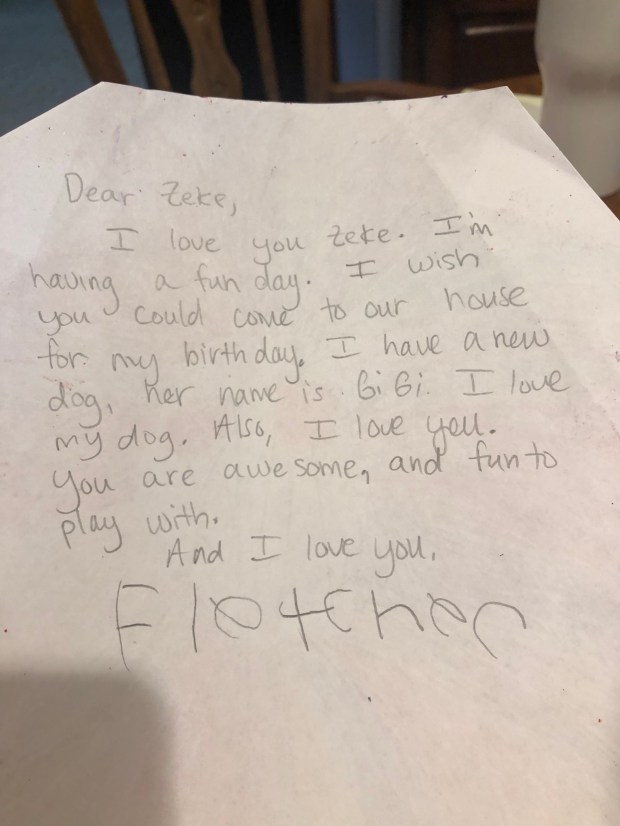 Dear Zeke,
I love you Zeke. I'm
having a fun day. I wish
you could come to our house
for my birthday. I have a new
dog, her name is GiGi. I love
my dog. Also, I love you.
You are awesome, and fun to
play with.
And I love you,
Fletcher